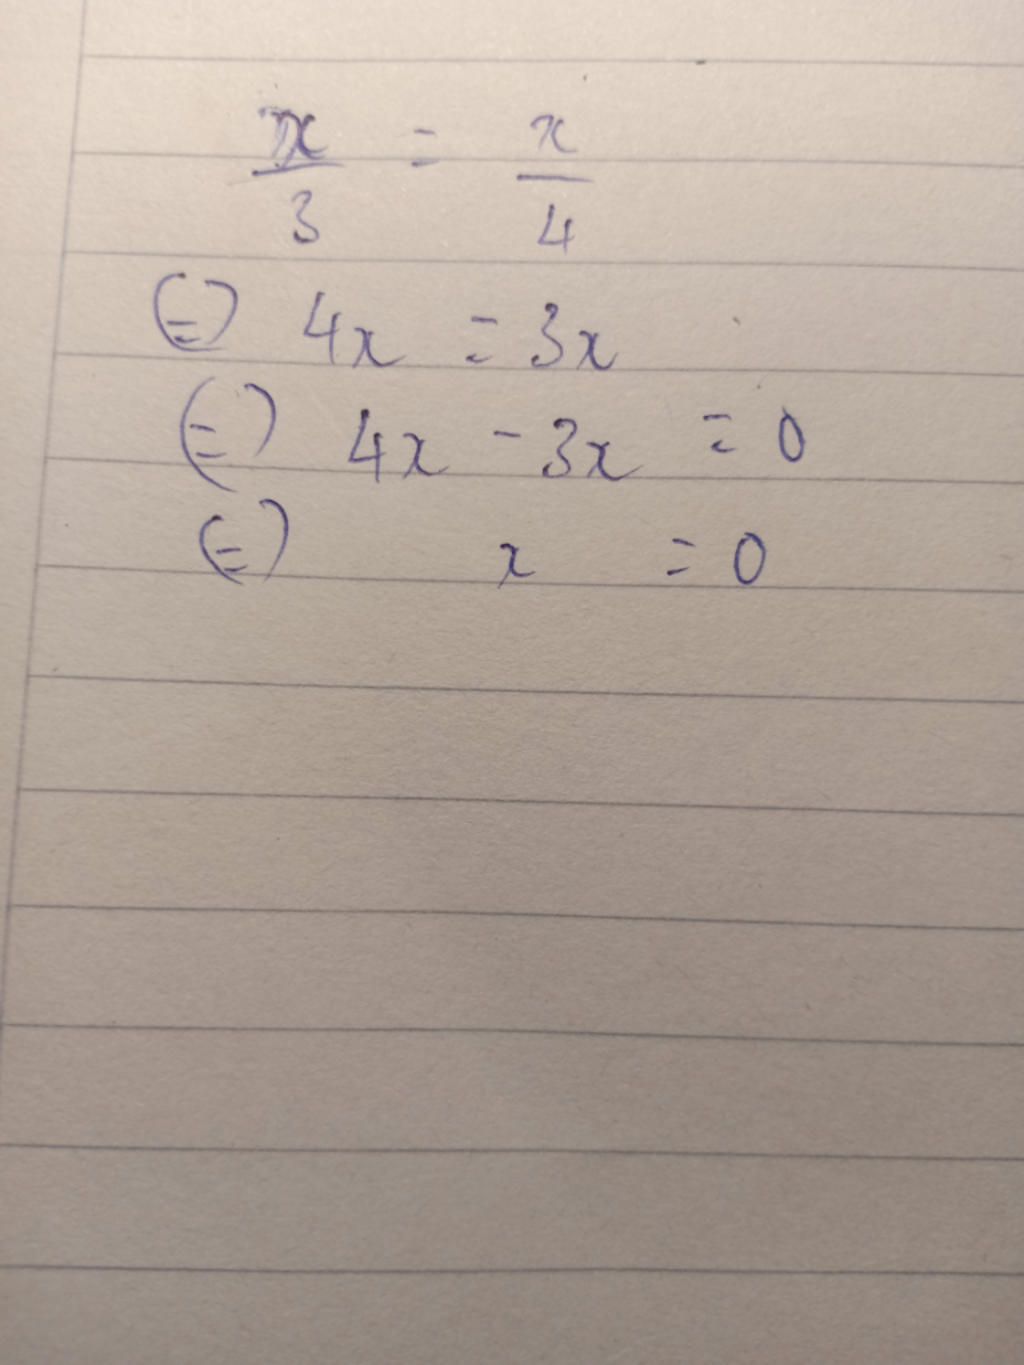 x/3 = x/4
(=) 4x = 3x
(=) 4x - 3x = 0
(=) x = 0